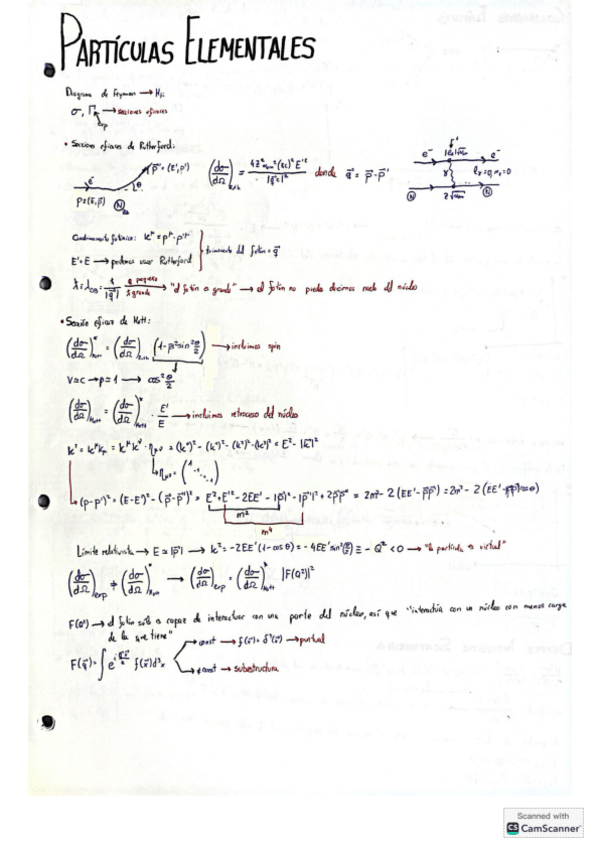 PARTÍCULAS ELEMENTALES
Diagrama de Feynman → H_fi
σ, Γ → secciones eficaces
exp
• Seccion eficaz de Rutherford:
e⁻ p⃗'=(E',p') θ
P=(E,p⃗) N
(dσ/dΩ)_Ruth = 4Z²α²(ħc)²E'²/|q⃗c|⁴ donde q⃗ = p⃗-p⃗'
e⁻ e⁻
γ
N N
Cuadrimomento fotónico: k^μ = p^μ-p'^μ
E'≈E → podemos usar Rutherford
trimomento del fotón = q⃗
q pequeño
λ grande
→ "el fotón es grande" → el fotón no puede decirnos nada del núcleo
• Sección eficaz de Mott:
(dσ/dΩ)*_Mott = (dσ/dΩ)_Ruth (1-β²sin²θ/2) → incluimos spin
v≈c → β≈1 → cos²θ/2
(dσ/dΩ)_Mott = (dσ/dΩ)*_Mott · E'/E → incluimos retroceso del núcleo
k² = k^μ k_μ = k^μ k^ν · η_μν = (k⁰)² - (k¹)² - (k²)² - (k³)² = E² - |k⃗|²
→ (p-p')² = (E-E')² - (p⃗-p⃗')² = E² + E'² - 2EE' - |p⃗|² - |p⃗'|² + 2p⃗p⃗' = 2m² - 2(EE' - p⃗p⃗')
m²
Límite relativista → E ≃ |p⃗| → k² = -2EE'(1-cosθ) = -4EE'sin²(θ/2) ≡ -Q² < 0 → "la partícula es virtual"
(dσ/dΩ)_exp ≠ (dσ/dΩ)_Mott → (dσ/dΩ)_exp = (dσ/dΩ)*_Mott |F(Q²)|²
F(Q²) → el fotón sólo es capaz de interactuar con una parte del núcleo, así que "interactúa con un núcleo con menos carga
de la que tiene"
const → f(x⃗) = δ³(x⃗) → puntual
F(q⃗) = ∫ e^{iq⃗x⃗/ħ} f(x⃗) d³x
≠ const → subestructura
Scanned with
CS CamScanner